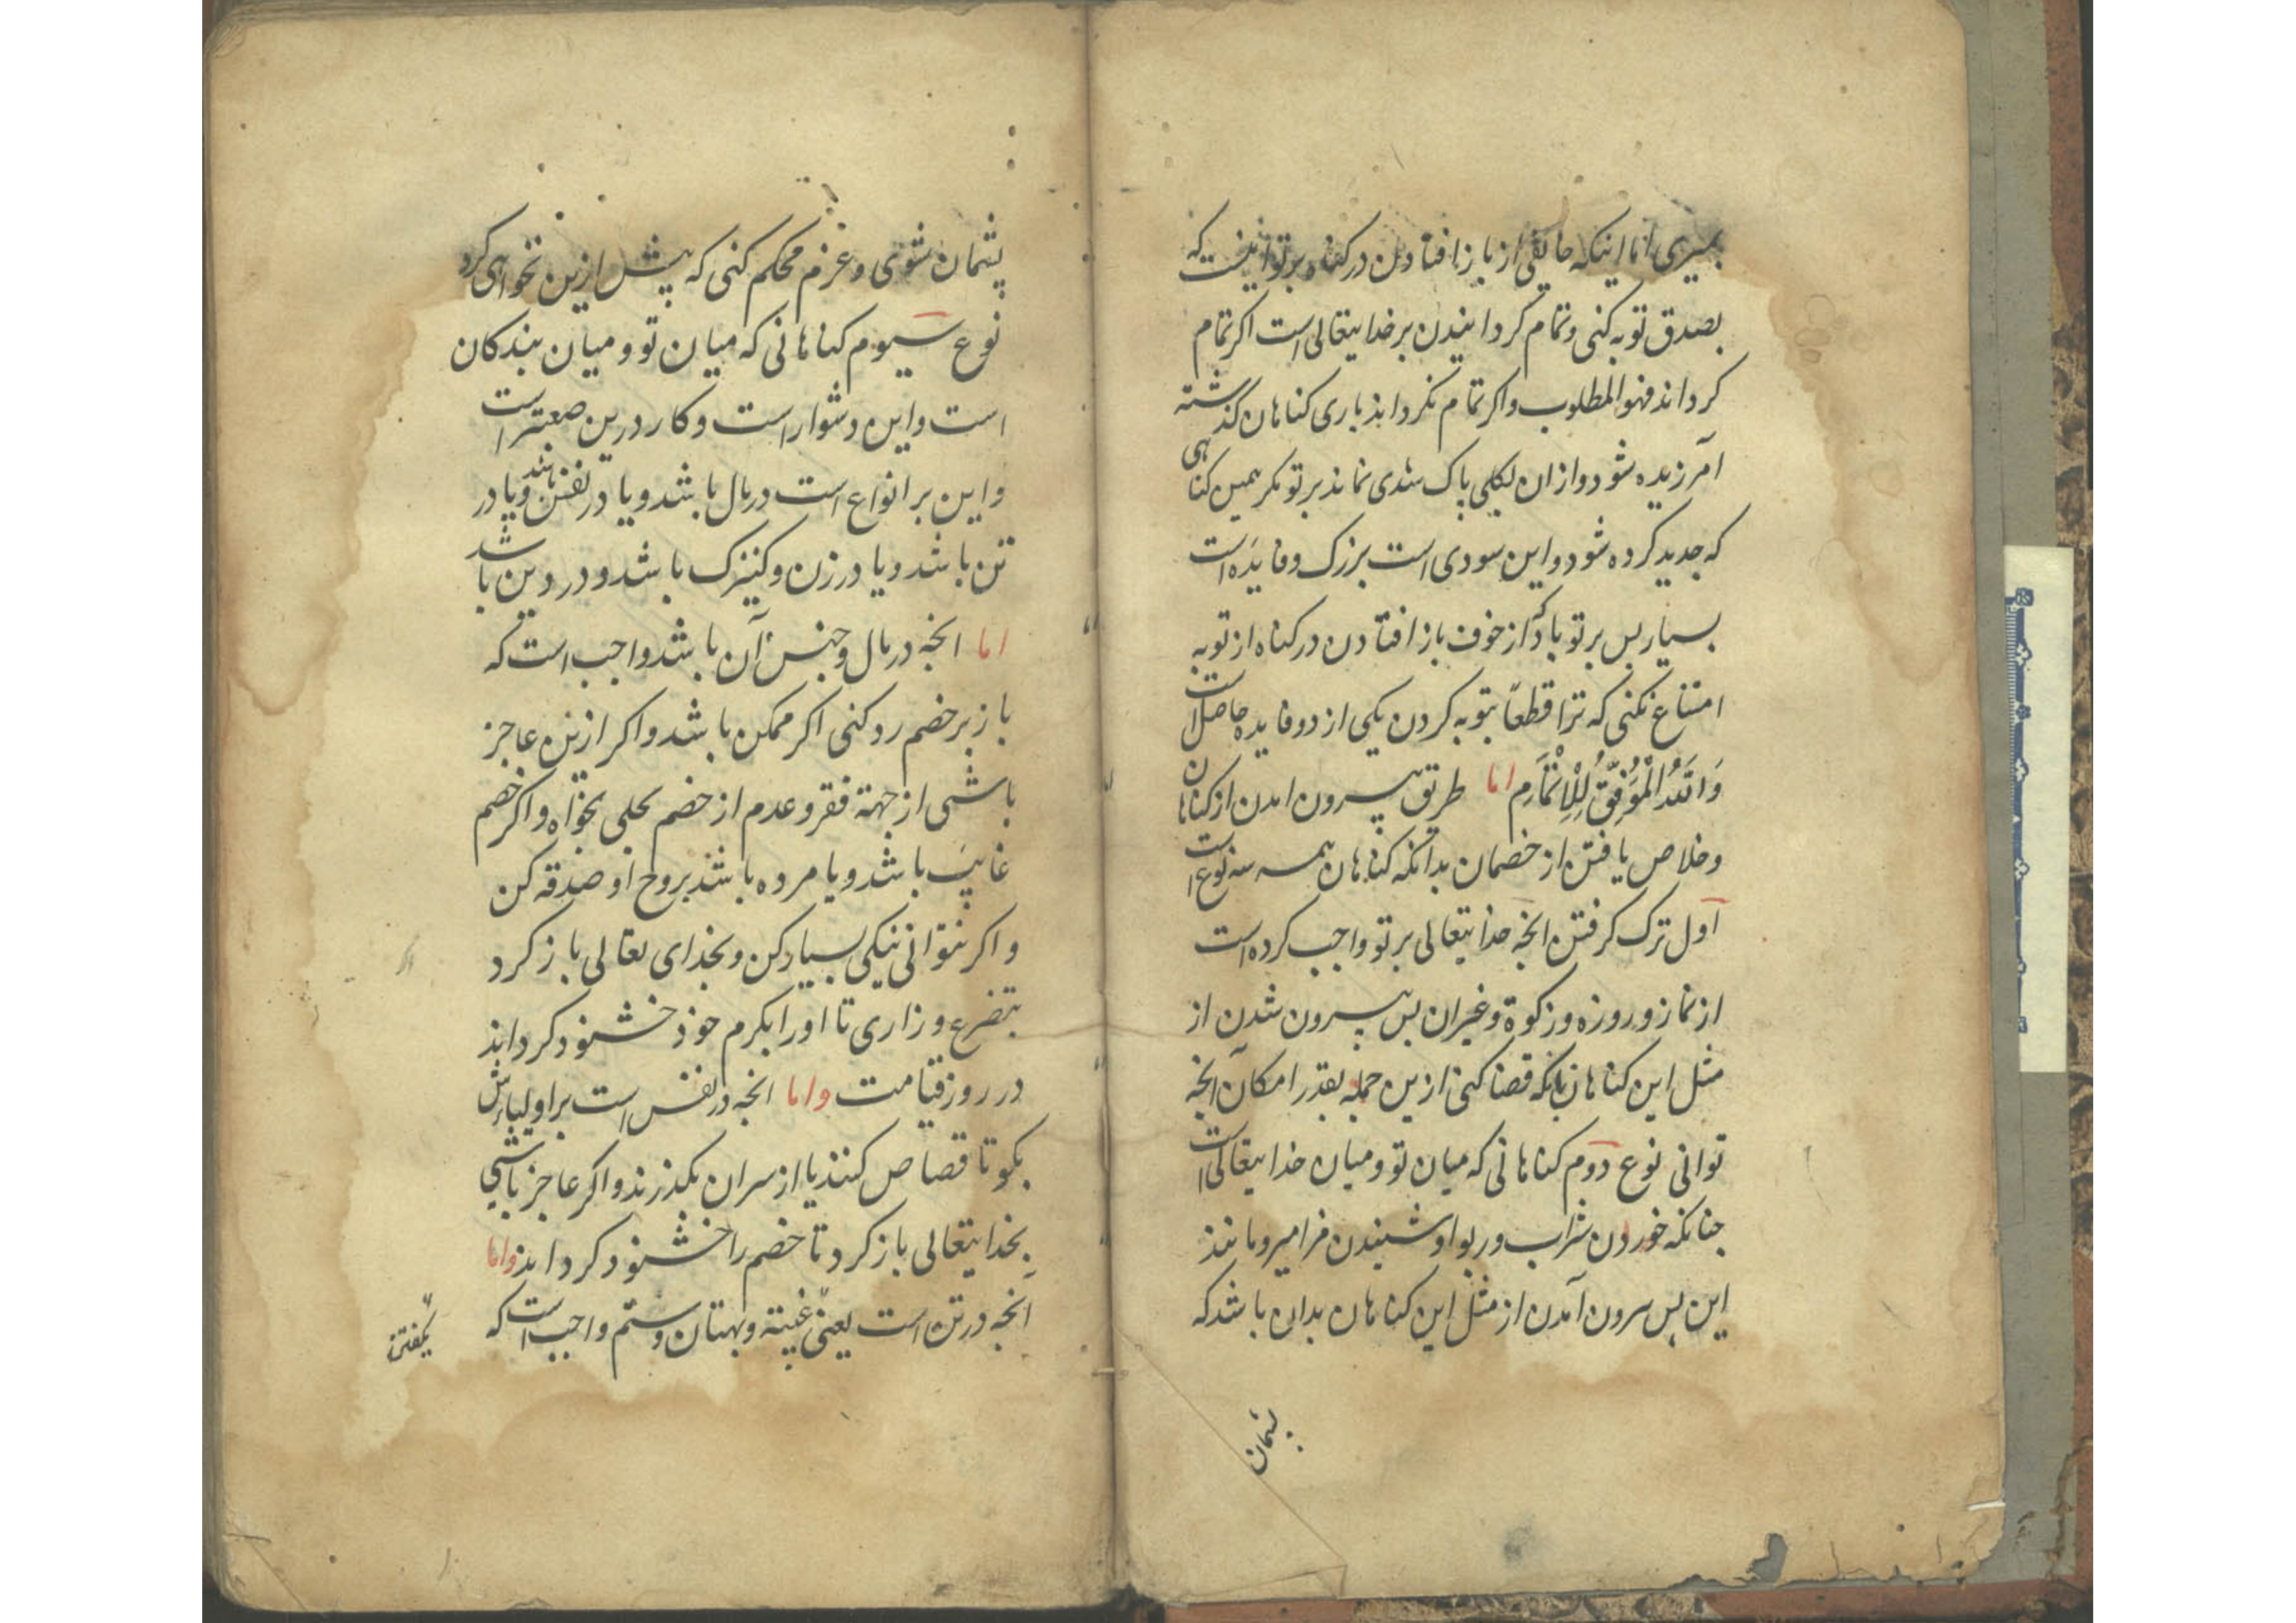 بمیری اما اینکه خایفی از باز افتادن در گناه بر تو اینست که
بصدق توبه کنی و تمام گردانیدن بر خدایتعالی است اگر تمام
گرداند فهو المطلوب و اگر تمام نگرداند باری گناهان گذشته
آمرزیده شود و ازان بکلی پاک شدی نماند بر تو مگر همین گناهی
که جدید کرده شود و این سودی است بزرگ و فایده است
بسیار پس بر تو باد که از خوف باز افتادن در گناه از توبه
امتناع نکنی که ترا قطعاً بتوبه کردن یکی از دو فایده حاصل است
وَاللّٰهُ الْمُوَفِّقُ لِلْاِتْمَامِ اما طریق بیرون امدن از کناهان
و خلاص یافتن از خصمان بدانکه کناهان همه سه نوع است
اول ترک کرفتن انچه خدایتعالی بر تو واجب کرده است
از نماز و روزه و زکوة و غیران پس بیرون شدن از
مثل این کناهان بانکه قضا کنی ازین جمله بقدر امکان آنچه
توانی نوع دوم کناهانی که میان تو و میان خدایتعالی است
چنانکه خوردن شراب و ربوا و شنیدن مزامیر و مانند
این پس بیرون آمدن از مثل این کناهان بدان باشد که
پشیمان
پشیمان شوی و عزم محکم کنی که پیش ازین نخواهی کرد
نوع سیوم کناهانی که میان تو و میان بندکان
است و این دشوار است و کار درین صعبتر است
و این بر انواع است در مال باشد و یا در نفس باشد و یا در
تن باشد و یا در زن و کنیزک باشد و در دین باشد
اما انچه در مال و جنس آن باشد واجب است که
باز بر خصم رد کنی اکر ممکن باشد و اکر ازین عاجز
باشی از جهة فقر و عدم از خصم بحلی بخواه و اکر خصم
غایب باشد و یا مرده باشد بروح او صدقه کن
و اکر نتوانی نیکی بسیار کن و بخدای تعالی باز کرد
بتضرع و زاری تا او را بکرم خود خشنود کرداند
در روز قیامت و اما انچه در نفس است بر اولیاءش
بکو تا قصاص کنند یا از سر ان بکذرند و اکر عاجز باشی
بخدایتعالی باز کرد تا خصم را خشنود کرداند و اما
آنچه در تن است یعنی غیبة و بهتان و ستم واجب است که